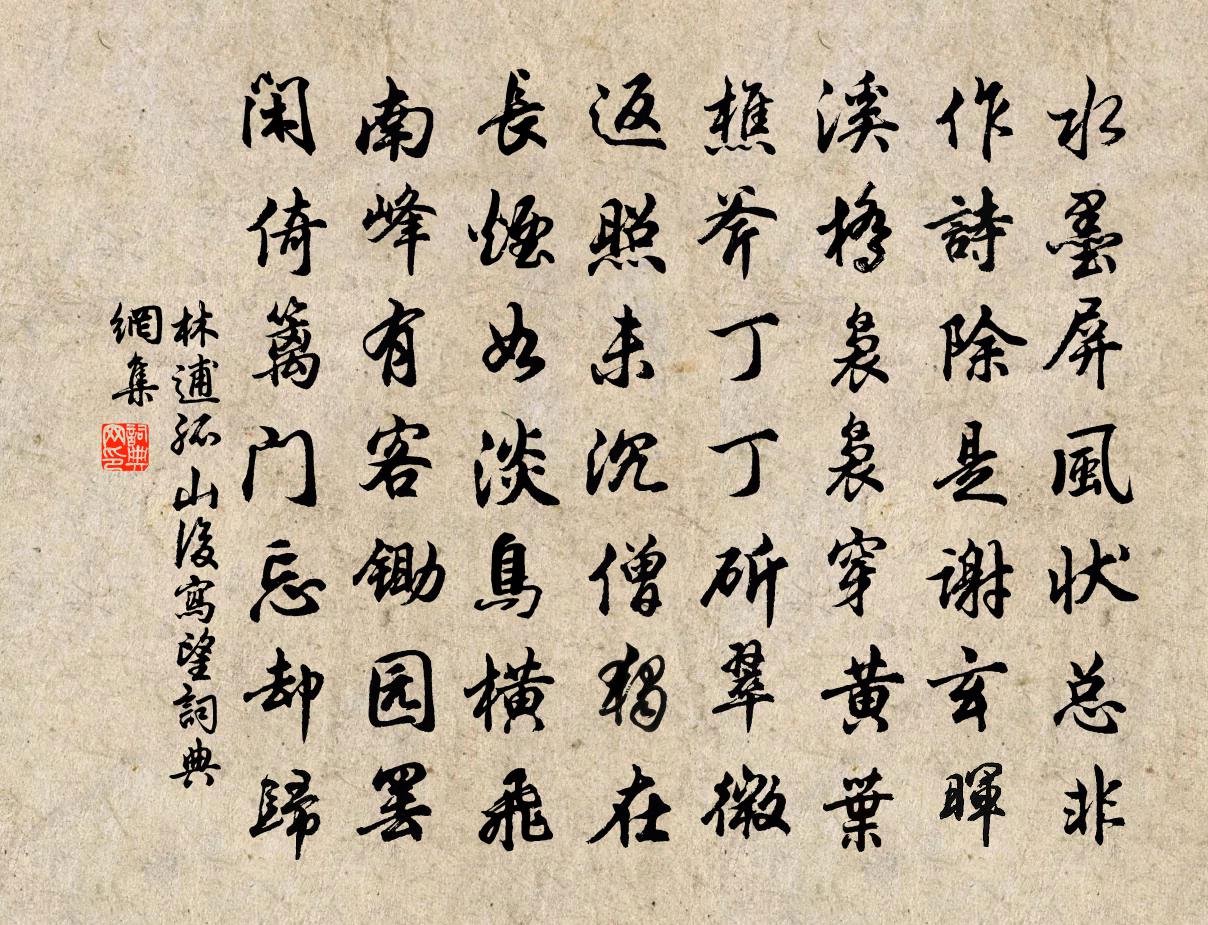 水墨屏風状总非
作詩除是謝玄暉
溪橋裊裊穿黃葉
樵斧丁丁斫翠微
返照未沉僧獨在
長煙如淡鳥橫飛
南峰有客锄园罢
闲倚篱门忘却歸
林逋孤山後寫望詞典
網集
詞典网印